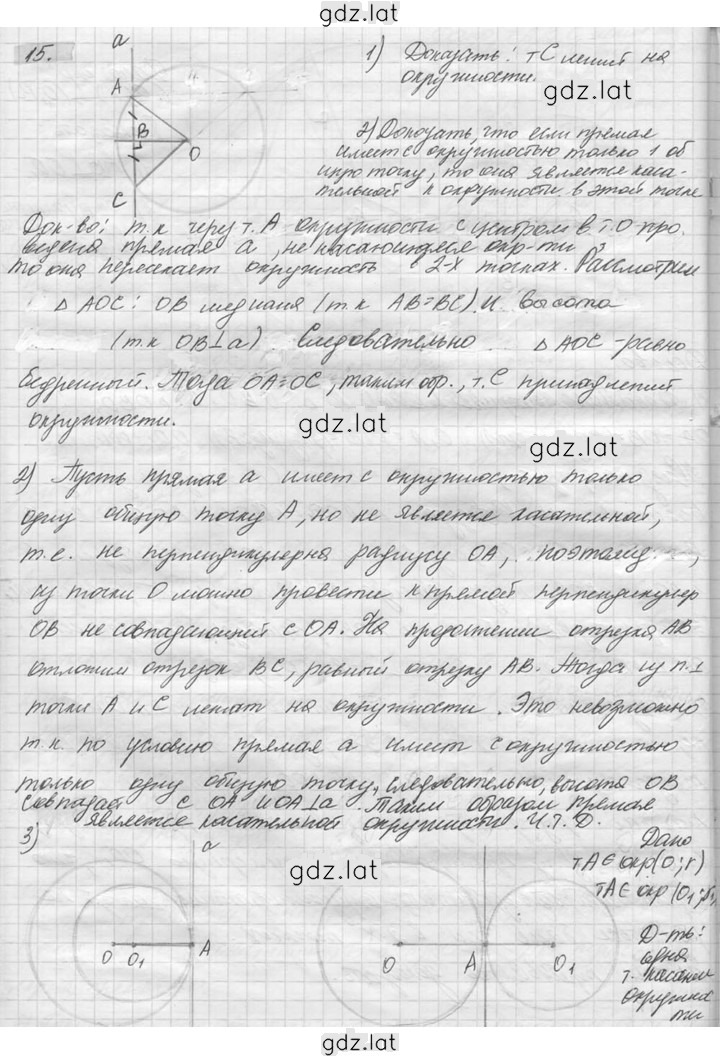 gdz.lat
15.
a
A
B
O
C
1) Доказать: тС лежит на
окружности.
gdz.lat
2) Доказать, что если прямая
имеет с окружностью только 1 об
щую точку, то она является каса-
тельной к окружности в этой точке
Док-во: т.к через т.А окружности с центром в т.О про.
ведена прямая а, не касающиеся окр-ти
то она пересекает окружность в 2-х точках. Рассмотрим
△ АОС: ОВ медиана (т.к АВ=ВС) и высота
(т.к ОВ⊥а) Следовательно △ АОС -равно
бедренный. Тогда ОА=ОС, таким обр., т.С принадлежит
окружности.
gdz.lat
gdz.lat
2) Пусть прямая а имеет с окружностью только
одну общую точку А, но не является касательной,
т.е. не перпендикулярна радиусу ОА, поэтому ,
из точки О можно провести к прямой перпендикуляр
ОВ не совпадающей с ОА. На продолжении отрезка АВ
отложим отрезок ВС, равный отрезку АВ. Тогда из п.1
точки А и С лежат на окружности. Это невозможно
т.к. по условию прямая а имеет с окружностью
только одну общую точку, следовательно, высота ОВ
совпадает с ОА и ОА⊥а. Таким образом прямая
является касательной окружности. Ч.Т.Д.
3)
a
gdz.lat
Дано
тА∈окр(О;r)
тА∈ окр (О₁;r₁
O O₁ A
O A O₁
Д-ть:
одна
т. касания
окружнос
ти
gdz.lat